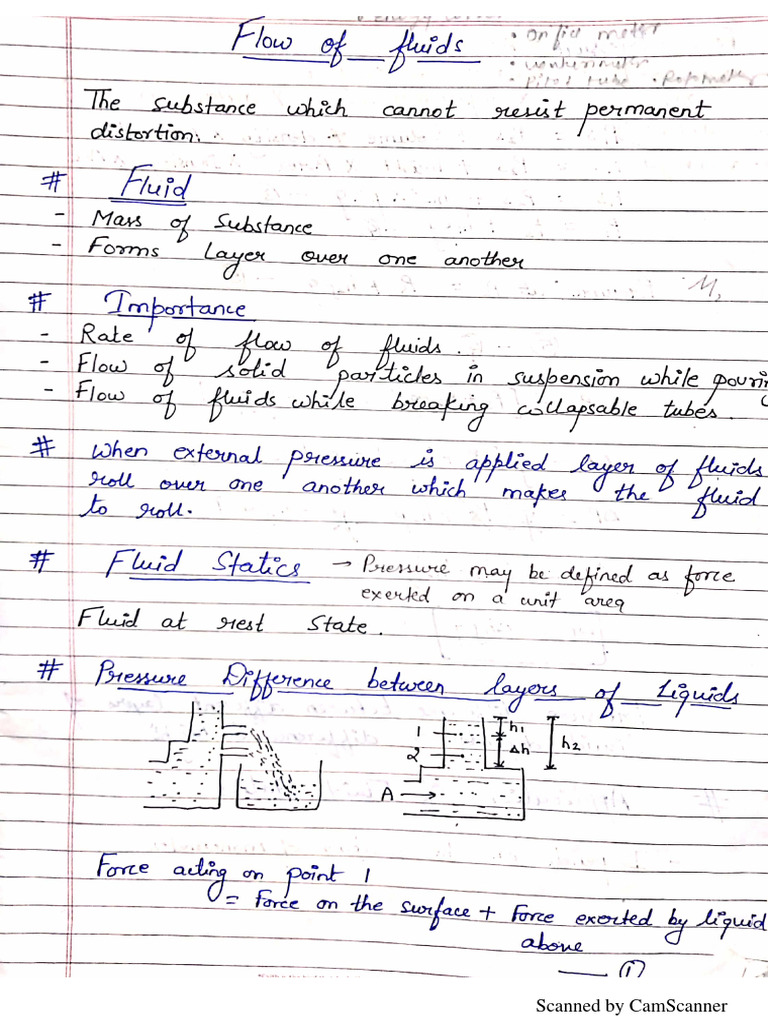 Flow of fluids
• Orifice meter
• Venturimeter
• Pitot tube • Rotameter
The substance which cannot resist permanent
distortion.
# Fluid
- Mass of substance
- Forms layer over one another
# Importance
- Rate of flow of fluids.
- Flow of solid particles in suspension while pouring
- Flow of fluids while breaking collapsable tubes.
# When external pressure is applied layer of fluids
roll over one another which makes the fluid
to roll.
# Fluid Statics → Pressure may be defined as force
exerted on a unit area
Fluid at rest state.
# Pressure Difference between layers of Liquids
1 h1
2 Δh h2
A
Force acting on point 1
= Force on the surface + Force exerted by liquid
above
— (1)
Scanned by CamScanner